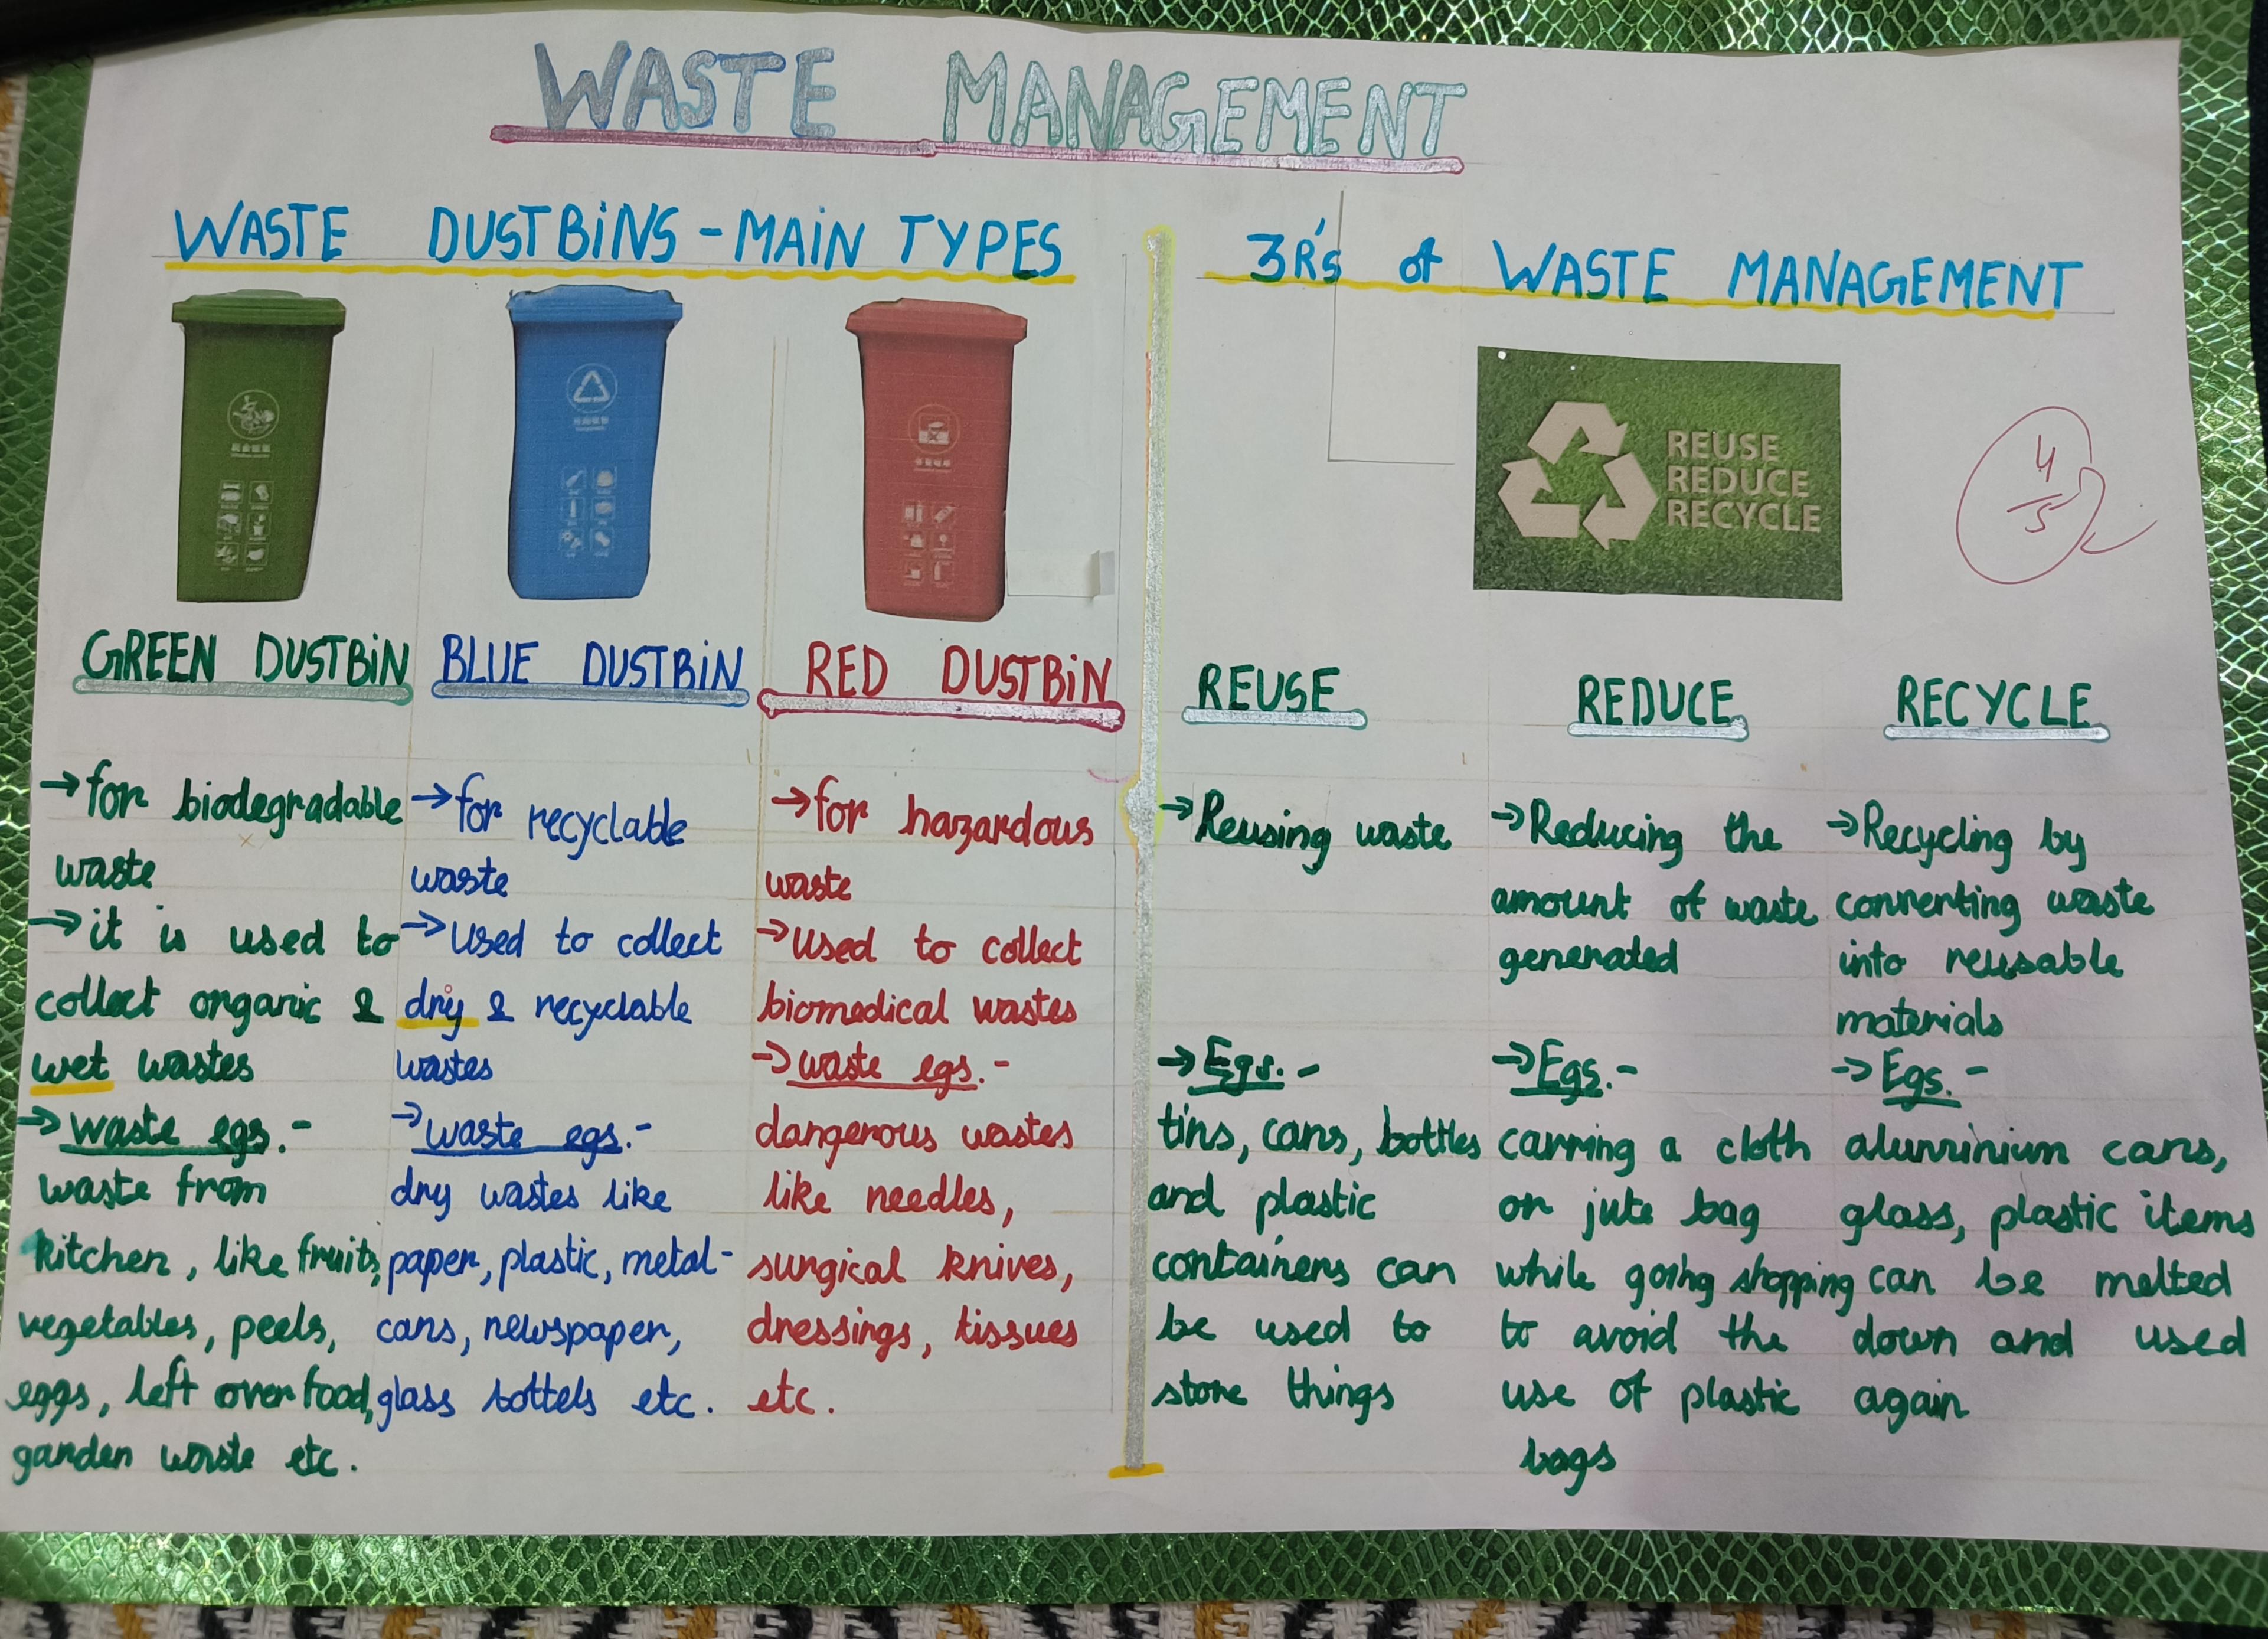 WASTE MANAGEMENT
WASTE DUSTBINS - MAIN TYPES
GREEN DUSTBIN
→ for biodegradable
waste
→ it is used to
collect organic &
wet wastes
→ waste egs.-
waste from
kitchen, like fruits,
vegetables, peels,
eggs, left over food,
garden waste etc.
BLUE DUSTBIN
→ for recyclable
waste
→ used to collect
dry & recyclable
wastes
→ waste egs.-
dry wastes like
paper, plastic, metal-
cans, newspaper,
glass bottels etc.
RED DUSTBIN
→ for hazardous
waste
→ used to collect
biomedical wastes
→ waste egs.-
dangerous wastes
like needles,
surgical knives,
dressings, tissues
etc.
3R's of WASTE MANAGEMENT
REUSE
REDUCE
RECYCLE
4
5
REUSE
→ Reusing waste
→ Egs.-
tins, cans, bottles
and plastic
containers can
be used to
store things
REDUCE
→ Reducing the
amount of waste
generated
→ Egs.-
carring a cloth
or jute bag
while going shopping
to avoid the
use of plastic
bags
RECYCLE
→ Recycling by
converting waste
into reusable
materials
→ Egs.-
aluminium cans,
glass, plastic items
can be melted
down and used
again